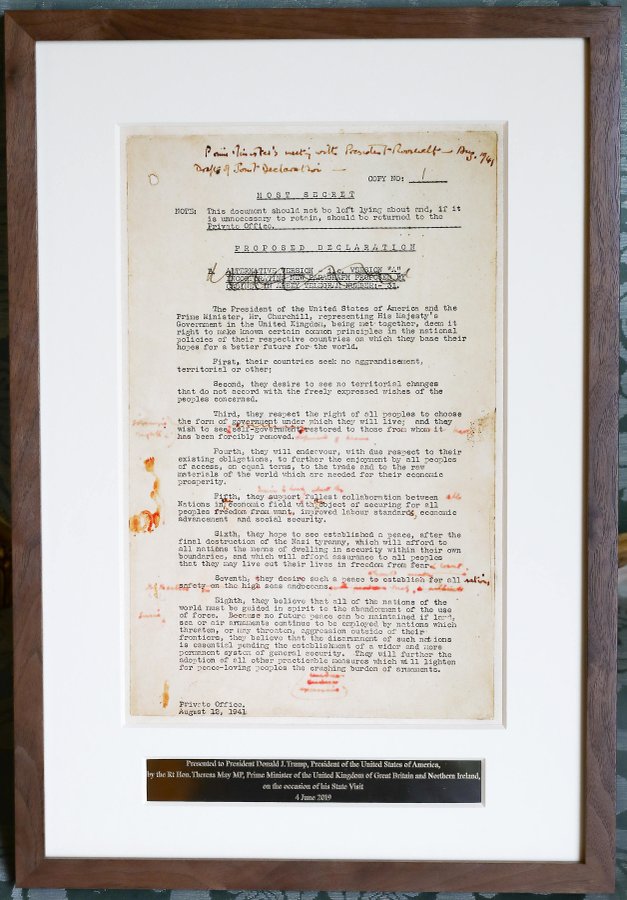 Prime Minister's meeting with President Roosevelt - Aug. 1941
Drafts of Joint Declaration -
COPY NO: 1
MOST SECRET
NOTE: This document should not be left lying about and, if it
is unnecessary to retain, should be returned to the
Private Office.
PROPOSED DECLARATION
ALTERNATIVE VERSION - i.e. VERSION "A"
INCORPORATING NEW PARAGRAPH PROPOSED BY
CABINET IN ABBEY TELEGRAM NUMBER:- 31.
The President of the United States of America and the
Prime Minister, Mr. Churchill, representing His Majesty's
Government in the United Kingdom, being met together, deem it
right to make known certain common principles in the national
policies of their respective countries on which they base their
hopes for a better future for the world.
First, their countries seek no aggrandisement,
territorial or other;
Second, they desire to see no territorial changes
that do not accord with the freely expressed wishes of the
peoples concerned.
Third, they respect the right of all peoples to choose
the form of government under which they will live; and they
wish to see self-government restored to those from whom it
has been forcibly removed.
Fourth, they will endeavour, with due respect to their
existing obligations, to further the enjoyment by all peoples
of access, on equal terms, to the trade and to the raw
materials of the world which are needed for their economic
prosperity.
Fifth, they support fullest collaboration between all
Nations in economic field with object of securing for all
peoples freedom from want, improved labour standards, economic
advancement and social security.
Sixth, they hope to see established a peace, after the
final destruction of the Nazi tyranny, which will afford to
all nations the means of dwelling in security within their own
boundaries, and which will afford assurance to all peoples
that they may live out their lives in freedom from fear
Seventh, they desire such a peace to establish for all
safety on the high seas and oceans.
Eighth, they believe that all of the nations of the
world must be guided in spirit to the abandonment of the use
of force. Because no future peace can be maintained if land,
sea or air armaments continue to be employed by nations which
threaten, or may threaten, aggression outside of their
frontiers, they believe that the disarmament of such nations
is essential pending the establishment of a wider and more
permanent system of general security. They will further the
adoption of all other practicable measures which will lighten
for peace-loving peoples the crushing burden of armaments.
Private Office.
August 12, 1941
Presented to President Donald J. Trump, President of the United States of America,
by the Rt Hon. Theresa May MP, Prime Minister of the United Kingdom of Great Britain and Northern Ireland,
on the occasion of his State Visit
4 June 2019